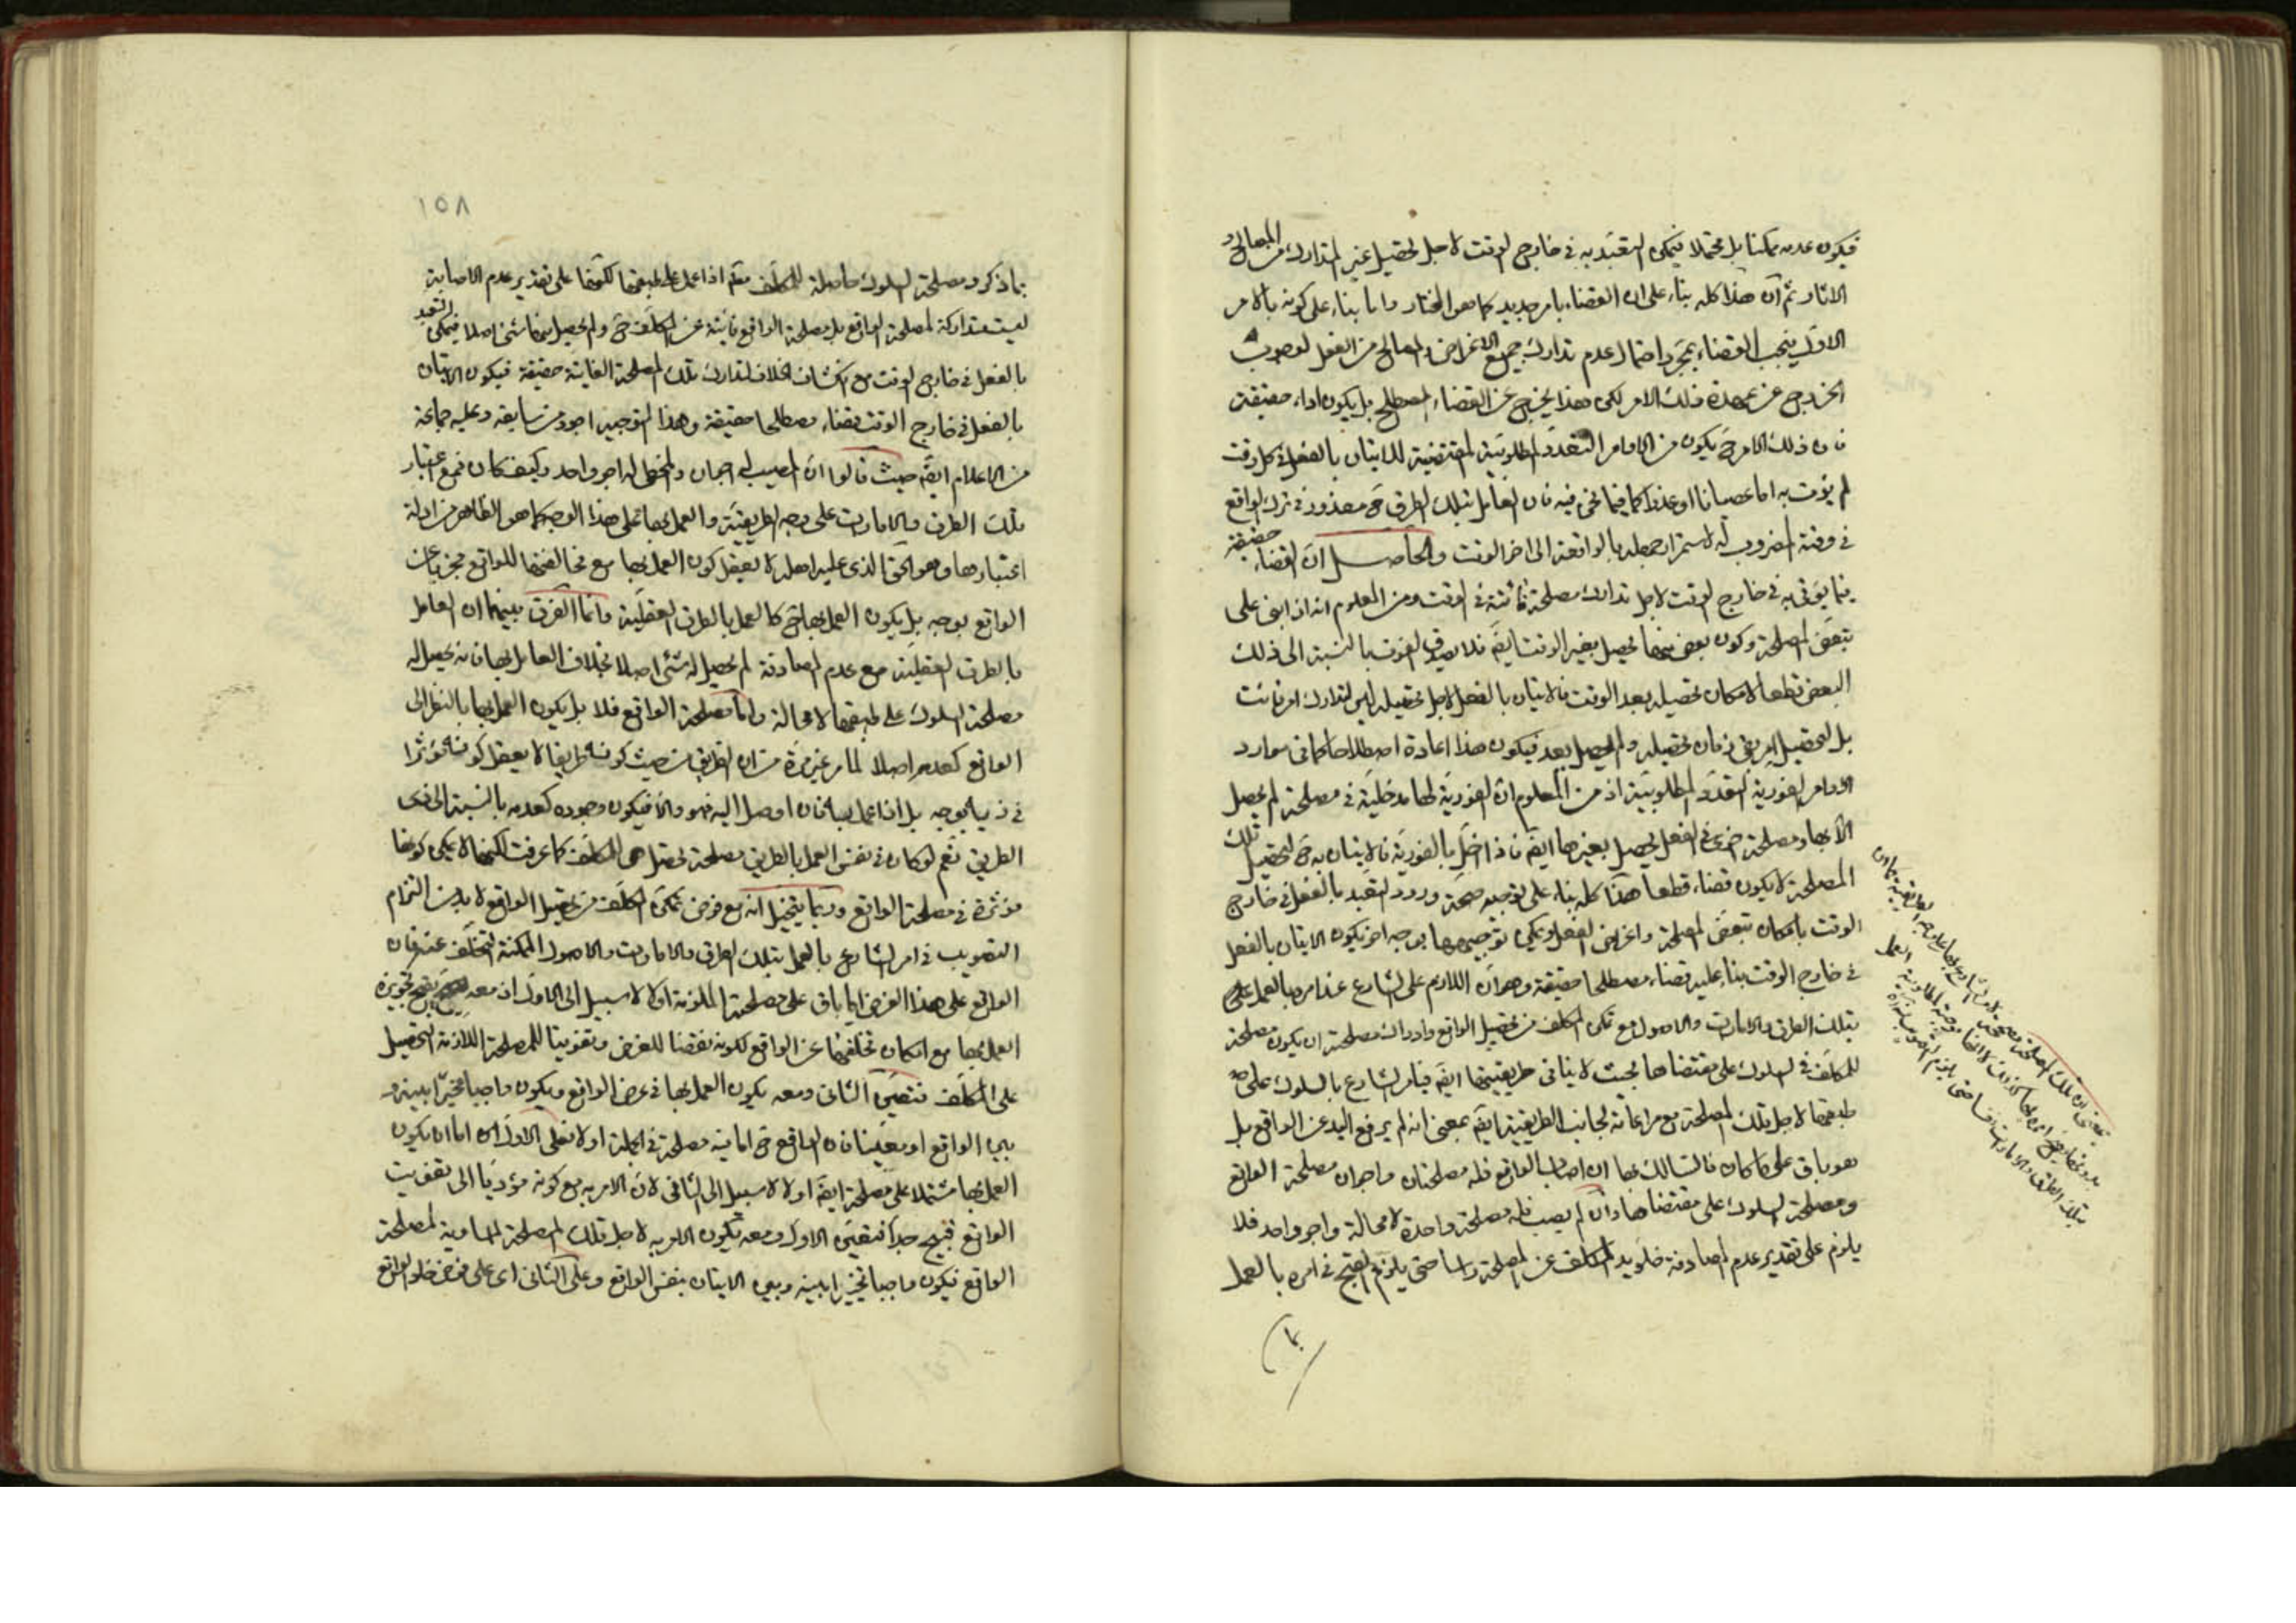 فيكون عدمه ممكنا بل محتملا فيمكن التعبد به فى خارج الوقت لاجل تحصيل غير المتدارك من المصالح و
الاثار ثم ان هذا كله بناء على ان القضاء بامر جديد كما هو المختار واما بناء على كونه بالامر
الاول فيجب القضاء بمجرد احتمال عدم تدارك جميع الاغراض والمصالح من الفعل لوجوب
الخروج عن عهدة ذلك الامر لكن هذا يخرج عن القضاء المصطلح بل يكون اداء حقيقة
فان ذلك الامر ح يكون من الاوامر المتعددة المطلوبية المقتضية للاتيان بالفعل فى كل وقت
لم يؤت به اما عصيانا او عذرا كما فيما نحن فيه فان العامل بتلك الطرق ح معذور فى ترك الواقع
فى وقته المضروب له لاستمرار جهله بالواقعة الى اخر الوقت والحاصل ان القضاء حقيقة
فيما يؤتى به فى خارج الوقت لاجل تدارك مصلحة فائتة فى الوقت ومن المعلوم انه اذا بنى على
تبعض المصلحة وكون بعض منها يحصل بغير الوقت ايضا فلا يصدق الفوت بالنسبة الى ذلك
البعض قطعا لامكان تحصيله بعد الوقت فالاتيان بالفعل لاجل تحصيله ليس لتدارك امر فائت
بل لتحصيل امر بقى زمان تحصيله ولم يحصل بعد فيكون هذا اعادة اصطلاحا كما فى موارد
الاوامر الفورية المتعدد المطلوبية اذ من المعلوم ان الفورية لها مدخلية فى مصلحة لم يحصل
الا بها ومصلحة اخرى فى الفعل يحصل بغيرها ايضا فاذا اخل بالفورية فالاتيان به ح لتحصيل تلك
المصلحة لا يكون قضاء قطعا هذا كله بناء على توجيه صحة ورود التعبد بالفعل فى خارج
الوقت بامكان تبعض المصلحة واغراض الفعل ويمكن توجيهها بوجه اخر يكون الاتيان بالفعل
فى خارج الوقت بناء عليه قضاء مصطلحا حقيقة وهو ان اللازم على الشارع عند امره بالعمل على
بتلك الطرق والامارات والاصول مع تمكن المكلف من تحصيل الواقع وادراك مصلحته ان يكون مصلحة
للمكلف فى السلوك على مقتضاها بحيث لا ينافى طريقيتها ايضا فيامر الشارع بالسلوك على
طبقها لاجل تلك المصلحة مع مراعاته لجانب الطريقية ايضا بمعنى انه لم يرفع اليد عن الواقع بل
هو باق على ما كان فالسالك بها ان اصاب الواقع فله مصلحتان واجران مصلحة الواقع
ومصلحة السلوك على مقتضاها وان لم يصب فله مصلحة واحدة لا محالة واجر واحد فلا
يلزم على تقدير عدم المصادفة خلو يد المكلف عن المصلحة راسا حتى يلزم القبح فى امره بالعمل
بما
يعنى ان تلك المصلحة مصححة لامر الشارع بها
بتلك الطرق والامارات
١٥٨
بما ذكر ومصلحة السلوك حاصلة للمكلف مطلقا اذا عمل على طبقها لكنها على تقدير عدم الاصابة
ليست متداركة لمصلحة الواقع بل مصلحة الواقع فائتة عن المكلف ح ولم يحصل منها شئ اصلا فيمكن التعبد
بالفعل فى خارج الوقت مع انكشاف الخلاف لتدارك تلك المصلحة الفائتة حقيقة فيكون الاتيان
بالفعل فى خارج الوقت قضاء مصطلحا حقيقة وهذا التوجيه اجود من سابقه وعليه جماعة
من الاعلام ايضا حيث قالوا ان المصيب له اجران والمخطى له اجر واحد وكيف كان فمع اعتبار
تلك الطرق والامارات على وجه الطريقية والعمل بها على هذا الوجه كما هو الظاهر من ادلة
اعتبارها وهو الحق الذى عليه اهله لا يعقل كون العمل بها مع مخالفتها للواقع مجزيا عن
الواقع بوجه بل يكون العمل بها ح كالعمل بالطرق العقلية وانما الفرق بينهما ان العامل
بالطرق العقلية مع عدم المصادفة لم يحصل له شئ اصلا بخلاف العامل بها فانه يحصل له
مصلحة السلوك على طبقها لا محالة واما مصلحة الواقع فلا بل يكون العمل بها بالنظر الى
الواقع كعدمه اصلا لما مر غير مرة من ان الطريق من حيث كونه طريقا لا يعقل كونه مؤثرا
فى ذيه بوجه بل اذا عمل به فان اوصل اليه فهو والا فيكون وجوده كعدمه بالنسبة الى ذى
الطريق نعم لو كان فى نفس العمل بالطريق مصلحة تحصل هى للمكلف كما عرفت لكنها لا يمكن كونها
مؤثرة فى مصلحة الواقع وربما يتخيل انه مع فرض تمكن المكلف من تحصيل الواقع لا بد من التزام
التصويب فى امر الشارع بالعمل بتلك الطرق والامارات والاصول الممكنة التخلف عنه فان
الواقع على هذا الفرض اما باق على مصلحته الملزمة او لا لا سبيل الى الاول اذ معه يقبح تجويزه
العمل بها مع امكان تخلفها عن الواقع لكونه نقضا للغرض وتفويتا للمصلحة اللازمة التحصيل
على المكلف فتعين الثانى ومعه يكون العمل بها فى عرض الواقع ويكون واجبا مخيرا بينه و
بين الواقع او معينا فان الواقع ح اما فيه مصلحة فى الجملة او لا فعلى الاول اما ان يكون
العمل بها مشتملا على مصلحة ايضا او لا لا سبيل الى الثانى لان الامر به مع كونه مؤديا الى تفويت
الواقع قبيح جدا فتعين الاول ومعه يكون الامر به لاجل تلك المصلحة المساوية لمصلحة
الواقع فيكون واجبا تخييرا بينه وبين الاتيان بنفس الواقع وعلى الثانى اى على فرض خلو الواقع